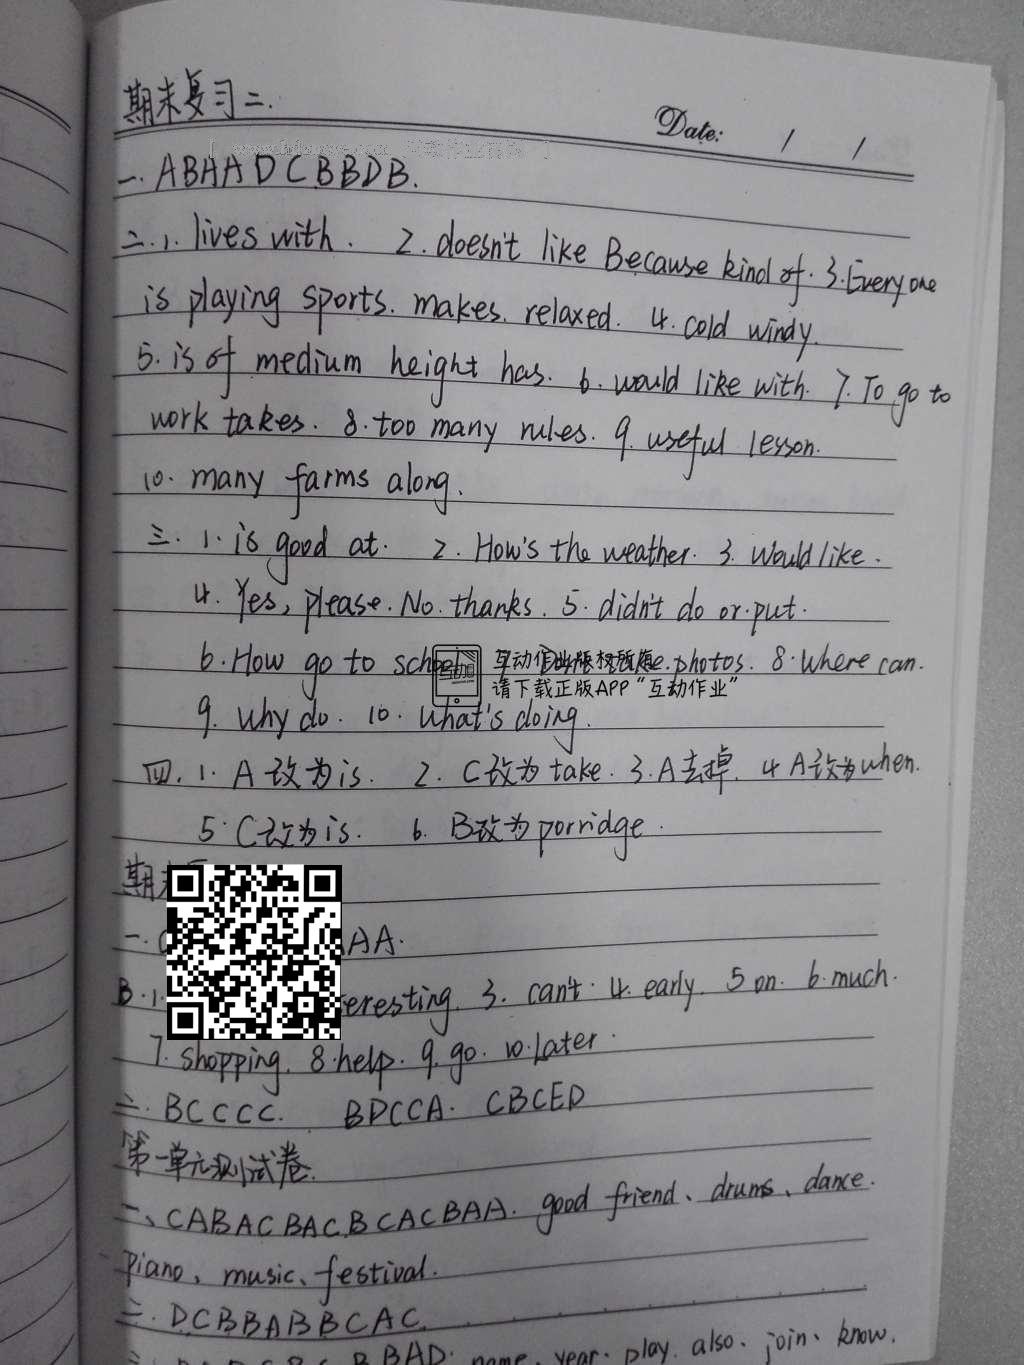 期末复习二.
Date: / /
一. ABAADCBBDB.
二.1. lives with. 2. doesn't like Because kind of. 3. Everyone
is playing sports. makes. relaxed. 4. cold windy.
5. is of medium height has. 6. would like with. 7. To go to
work takes. 8. too many rules. 9. useful lesson.
10. many farms along.
三. 1. is good at. 2. How's the weather. 3. Would like.
4. Yes, please. No. thanks. 5. didn't do or put.
6. How go to school take photos. 8. Where can.
互动作业版权所有
请下载正版APP“互动作业”
9. Why do. 10. What's doing.
四. 1. A改为is. 2. C改为take. 3. A去掉. 4 A改为when.
5. C改为is. 6. B改为porridge.
期末
一. AA.
B. 1. eresting. 3. can't. 4. early. 5 on. 6. much.
7. shopping. 8. help. 9. go. 10. Later.
二. BCCCC. BDCCA. CBCED
第一单元测试卷.
一、CABACBACBCACBAA. good friend、drums、dance.
piano、music、festival.
二. DCBBABBCAC.
BBAD. name、year. play. also、join、know.